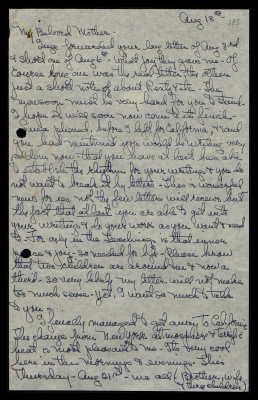 Aug 18th
My Beloved Mother
Inez forwarded your long letter of Aug 3rd
& short one of Aug 6th. What joy they gave me. Of
course long one was the real letter the others
just a short note of about
monsoon must be very hard for you to stand
hope it will soon now come to its finish
phoned before I left for California, & said
you had mentioned you would be writing very
seldom now that you have at last been able
to establish the rhythm for your writings & you do
not want to break it by letters. This is wonderful
news for us, not the few letters we'll receive but
the fact that at last you are able to get into
your writings & do your work as you want & need
to. For only in the is that inner
peace & you so needed for it. Please know
that two children are around me & now a
third so very likely my letter will not make
too much sense. Yet, I want so much to talk
to you.
I finally managed to get away to California
The change from New York atmosphere & terrific
heat is most pleasant to me. It's very cool
here in the mornings & evenings. This
Thursday Aug 21st we all (Brother, wife
(three children)